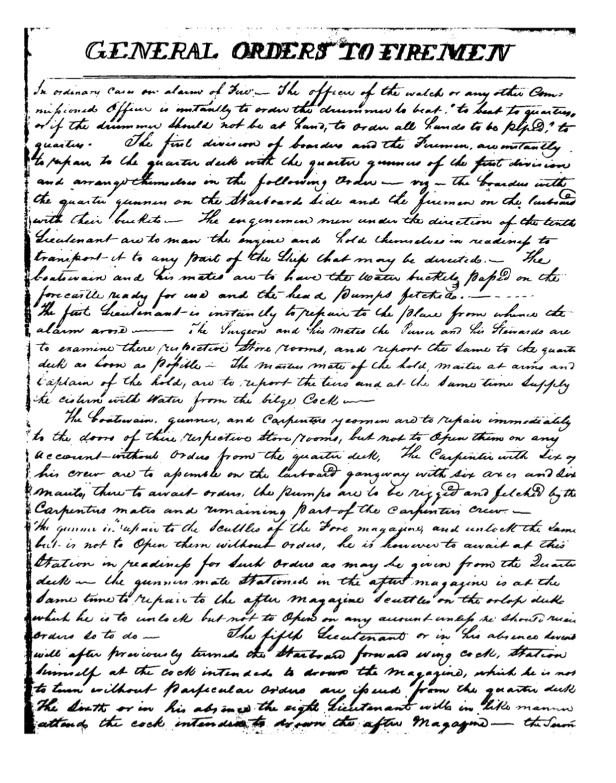 GENERAL ORDERS TO FIREMEN
In ordinary cases on alarm of Fire — The officer of the watch or any other Com-
missioned Officer is instantly to order the drummer to beat "to beat to quarters,
or if the drummer should not be at hand, to order all hands to be piped "to
quarters. The first division of boarders and the Firemen, are instantly
to repair to the quarter deck with the quarter gunners of the first division
and arrange themselves in the following order — viz — the boarders with
the quarter gunners on the Starboard side and the firemen on the larboard
with their buckets — The enginemen men under the direction of the tenth
Lieutenant are to man the engine and hold themselves in readiness to
transport it to any part of the Ship that may be directed. — The
boatswain and his mates are to have the water buckets passed on the
forecastle ready for use and the head pumps fetched. —
The first Lieutenant is instantly to repair to the place from whence the
alarm arose — The Surgeon and his mates the Purser and his Stewards are
to examine there respective Store rooms, and report the same to the quarter
deck as soon as possible — The masters mate of the hold, master at arms and
Captain of the hold, are to report the tiers and at the same time supply
the cistern with Water from the bilge Cock —
The boatswain, gunner, and Carpenters yeomen are to repair immediately
to the doors of there respective Store rooms, but not to Open them on any
account without orders from the quarter deck, The Carpenter with Six of
his crew are to assemble on the larboard gangway with six axes and six
mauls, there to await orders, the pumps are to be rigged and fetched by the
Carpenters mates and remaining part of the Carpenters crew. —
The gunner is repair to the Scuttles of the Fore magazine, and unlock the same
but is not to Open them without orders, he is however to await at this
Station in readiness for such orders as may be given from the Quarter
deck — the gunners mate Stationed in the after magazine is at the
same time to repair to the after magazine scuttles on the orlop deck
which he is to unlock but not to Open on any account unless he should receive
orders so to do — The fifth Lieutenant or in his absence
will after previously turned the Starboard forward wing cock, Station
himself at the cock intended to drown the Magazine, which he is not
to turn without particular orders are issued from the quarter deck
The Sixth or in his absence the eight Lieutenant will in like manner
attend the cock intended to drown the after Magazine — the